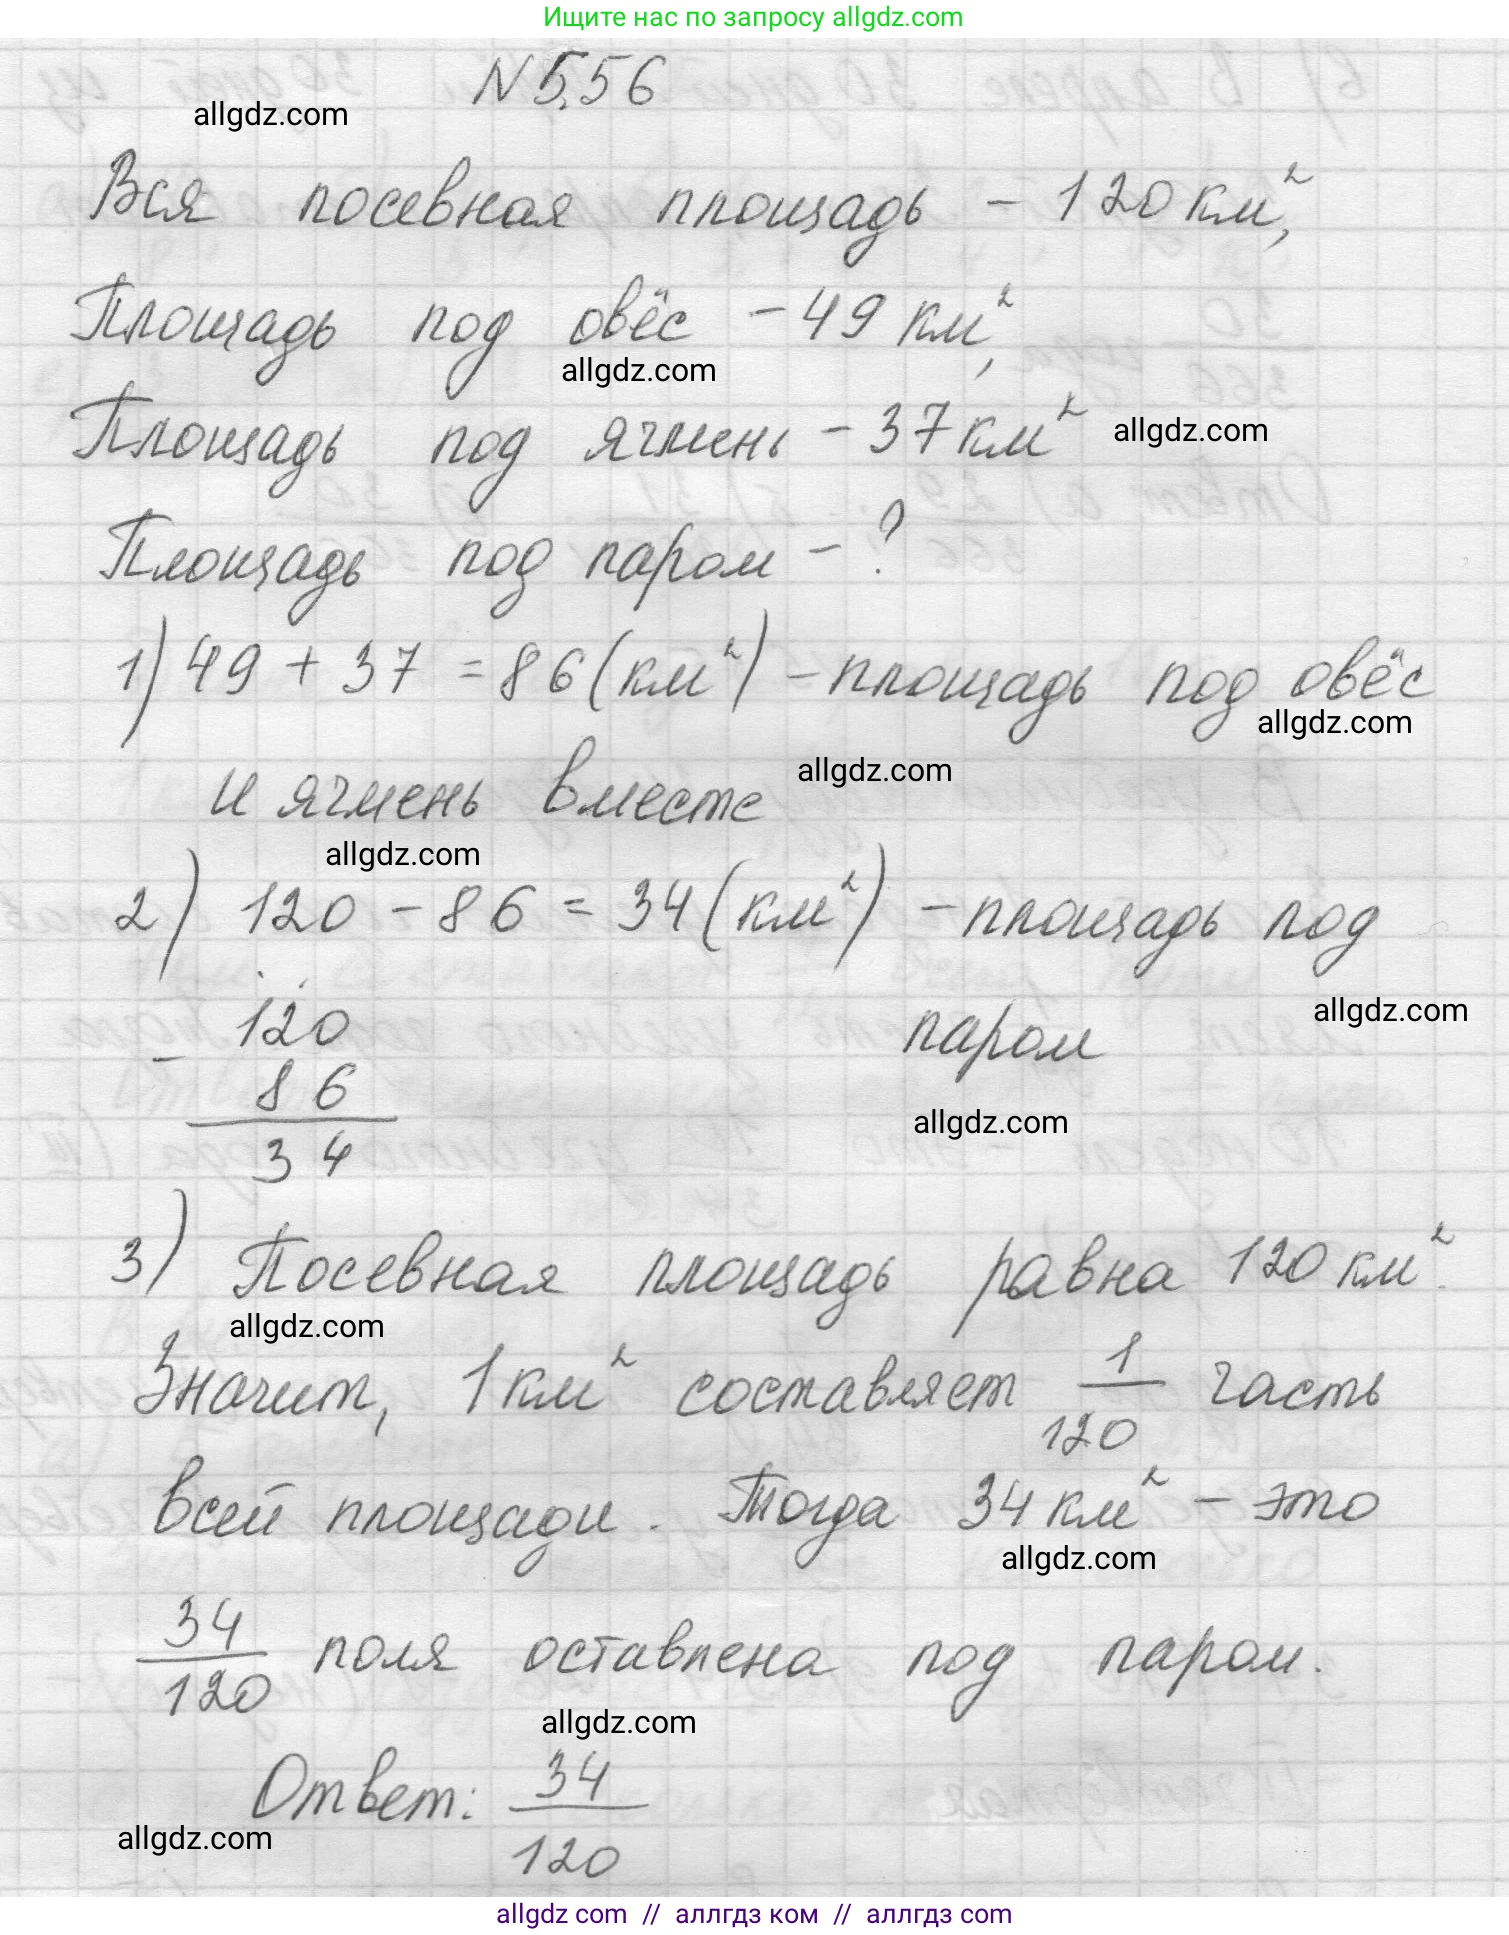 Ищите нас по запросу allgdz.com
N 5.56
allgdz.com
Вся посевная площадь - 120 км²,
Площадь под овёс - 49 км²,
allgdz.com
Площадь под ячмень - 37 км²
allgdz.com
Площадь под паром - ?
1) 49 + 37 = 86 (км²) - площадь под овёс
allgdz.com
и ячмень вместе
allgdz.com
allgdz.com
2) 120 - 86 = 34 (км²) - площадь под
паром
allgdz.com
- 120
86
34
allgdz.com
3) Посевная площадь равна 120 км².
allgdz.com
Значит, 1 км² составляет 1/120 часть
всей площади. Тогда 34 км² - это
allgdz.com
34/120 поля оставлена под паром.
allgdz.com
Ответ: 34/120
allgdz.com
allgdz com // аллгдз ком // аллгдз com